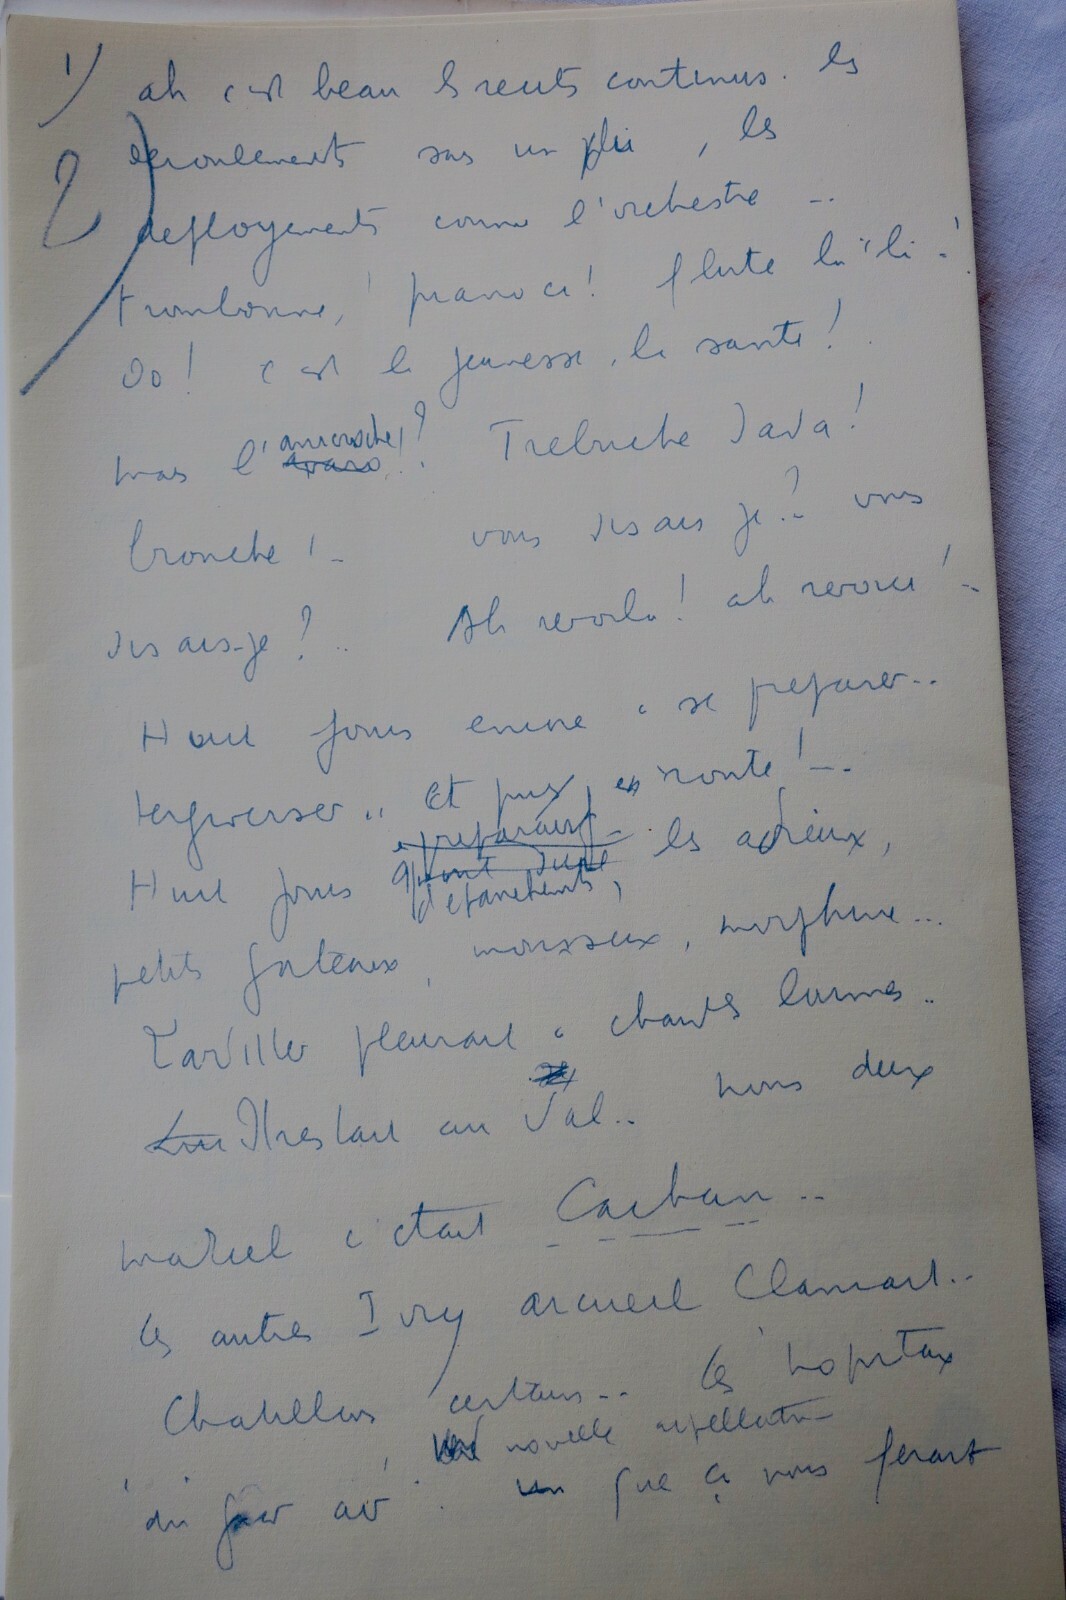 1) ah c'est beau ls recits continus. les
2) deroulements sans un pli, les
deployements comme l'orchestre ..
trombonne, ! piano ci! flute la ! ..
Do! c'est la jeunesse, la sante!
mais l'anicroche!? Trebuche Java!
bronche! .. vous disais je? .. vous
disais-je? .. Ah revoila! ah revoici! ..
Huit jours encore a se preparer..
tergiverser .. Et puis, en route! ..
a preparait
Huit jours les adieux,
d'epanchements,
petits gateaux, mousseux, morphine...
pleurait a chaudes larmes ..
Il restait au Val.. nous deux
c'etait ..
les autres Ivry arcueil Clamart..
Chatillon certains .. les hopitaux
nouvelle appellation
que ça nous ferait